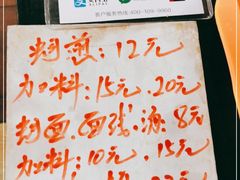 客户服务热线 400-109-9960
封煎：12元
加料：15元.20元
封面.面线.汤8元
加料：10元.15元